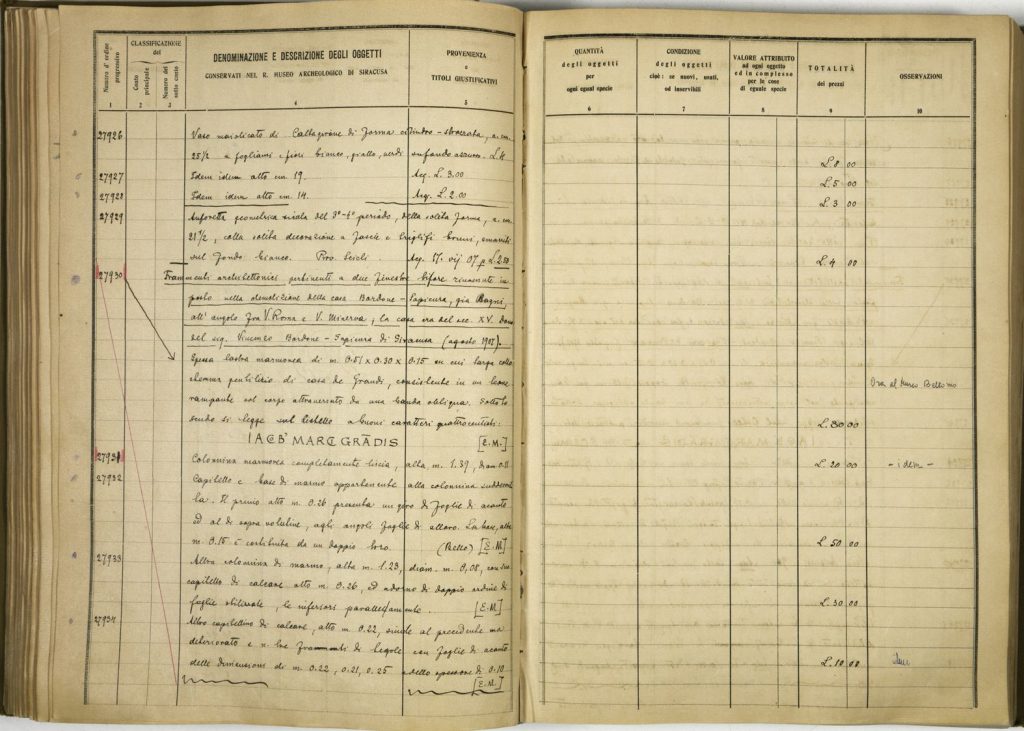 Numero d'ordine progressivo
CLASSIFICAZIONE
del
Conto principale
Numero del sotto conto
DENOMINAZIONE E DESCRIZIONE DEGLI OGGETTI
CONSERVATI NEL R. MUSEO ARCHEOLOGICO DI SIRACUSA
PROVENIENZA
e
TITOLI GIUSTIFICATIVI
1 2 3 4 5
27926 Vaso maiolicato di Caltagirone di forma cilindro-strozzata, a. cm.
25½ a fogliami e fiori bianco, giallo, verdi su fondo azzurro.
27927 Idem idem alto cm. 19. Acq. L. 3.00
27928 Idem idem alto cm. 14. Acq. L. 2.00
27929 Anforetta geometrica sicula del 3°-4° periodo, della solita forma, a. cm.
21½, colla solita decorazione a fascie e triglifi bruni, svaniti
sul fondo bianco. Prov. Scicli. Acq. 17. vij 07 p L. 2.50
27930 Frammenti architettonici pertinenti a due finestre bifore rinvenute in
posto nella demolizione della casa Bordone-Sapienza, già Bagni,
all'angolo fra V. Roma e V. Minerva, la casa era del sec. XV. Dono
del sig. Vincenzo Bordone-Sapienza di Siracusa (agosto 1907).
Spessa lastra marmorea di m. 0.51 x 0.30 x 0.15 su cui larga
stemma gentilizio di casa de Grandi, consistente in un leone
rampante col corpo attraverso da una banda obliqua. Sotto lo
scudo si legge sul listello a buoni caratteri quattrocentisti:
IACB' MARC GRĀDIS [E.M.]
27931 Colonnina marmorea completamente liscia, alta m. 1.39, diam. 0.11
27932 Capitello e base di marmo appartenente alla colonnina suddescrit-
ta. Il primo alto m. 0.26 presenta un giro di foglie di acanto
ed al di sopra volutine, agli angoli foglie di alloro. La base, alta
m. 0.15 è costituita da un doppio toro. (Bello) [E.M.]
27933 Altra colonnina di marmo, alta m. 1.23, diam. m. 0,08, con suo
capitello di calcare alto m. 0.26, ed adorno di doppio ordine di
foglie obliterate, le inferiori parallelamente. [E.M.]
27934 Altro capitellino di calcare, alto m. 0.22, simile al precedente ma
deteriorato e n. tre frammenti di con foglie di acanto
delle dimensioni di m. 0.22, 0.21, 0.25 e dello spessore di 0.10
[E.M.]
QUANTITÀ
degli oggetti
per
ogni egual specie
CONDIZIONE
degli oggetti
cioè: se nuovi, usati,
od inservibili
VALORE ATTRIBUITO
ad ogni oggetto
ed in complesso
per le cose
di eguale specie
TOTALITÀ
dei prezzi
OSSERVAZIONI
6 7 8 9 10
L. 8 00
L. 5 00
L. 3 00
L. 4 00
Ora al Museo Bellomo
L. 80 00
L. 20 00 - idem -
L. 50 00
L. 30 00
L. 10 00